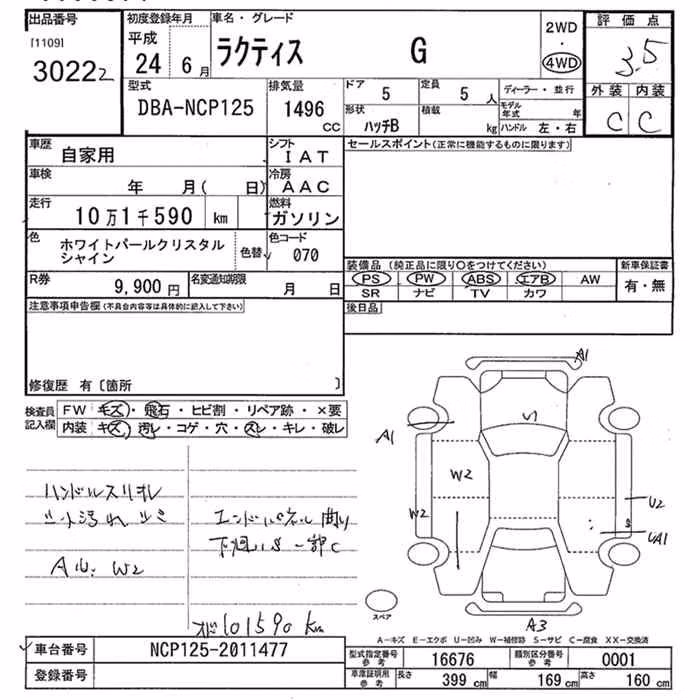 出品番号
[1109]
30222
初度登録年月
平成
24 6月
車名・グレード
ラクティス G
2WD
・
4WD
評価点
3.5
外装 内装
C C
型式
DBA-NCP125
排気量
1496
CC
ドア
5
定員
5 人
形状
ハッチB
積載
kg
ディーラー・並行
モデル
年式 年
ハンドル 左・右
車歴
自家用
シフト
IAT
車検
年 月( 日)
冷房
AAC
走行
10万1千590 km
燃料
ガソリン
色
ホワイトパールクリスタル
シャイン
色替
色コード
070
R券
9,900 円
名変通知期限
月 日
セールスポイント(正常に機能するものに限ります)
装備品 (純正品に限り〇をつけてください)
PS PW ABS エアB AW
SR ナビ TV カワ
新車保証書
有・無
後日品
注意事項申告欄(不具合内容等は具体的に記入して下さい)
修復歴 有〔箇所 〕
検査員
記入欄
FW キズ・飛石・ヒビ割・リペア跡・×要
内装 キズ・汚レ・コゲ・穴・スレ・キレ・破レ
ハンドルスリオレ
シート汚れシミ
Aル、W2
エンドパネル曲り
下廻りS一部C
オド101590km
A1
A1
U
W2
W2
U2
S
UA1
A3
スペア
A-キズ E-エクボ U-凹み W-補修跡 S-サビ C-腐食 XX-交換済
車台番号
NCP125-2011477
登録番号
型式指定番号
参考
16676
類別区分番号
参考
0001
車庫証明用
参考
長さ
399 cm
幅
169 cm
高さ
160 cm